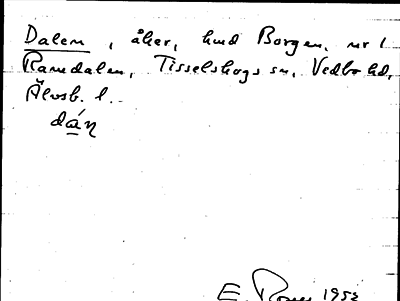 Dalen, åker, hmd Borgen, nr 1
Ramdalen, Tisselskogs sn, Vedbo hd,
Älvsb. l.
dáṇ
E. 1952